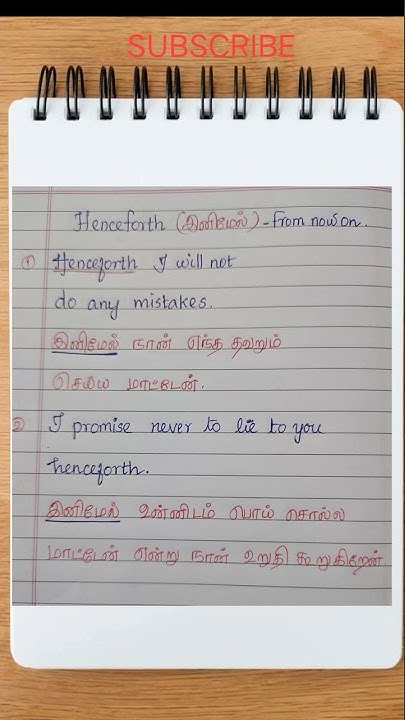 SUBSCRIBE
Henceforth (இனிமேல்) - from now on.
① Henceforth I will not
do any mistakes.
இனிமேல் நான் எந்த தவறும்
செய்ய மாட்டேன்.
2 I promise never to lie to you
henceforth.
இனிமேல் உன்னிடம் பொய் சொல்ல
மாட்டேன் என்று நான் உறுதி கூறுகிறேன்.